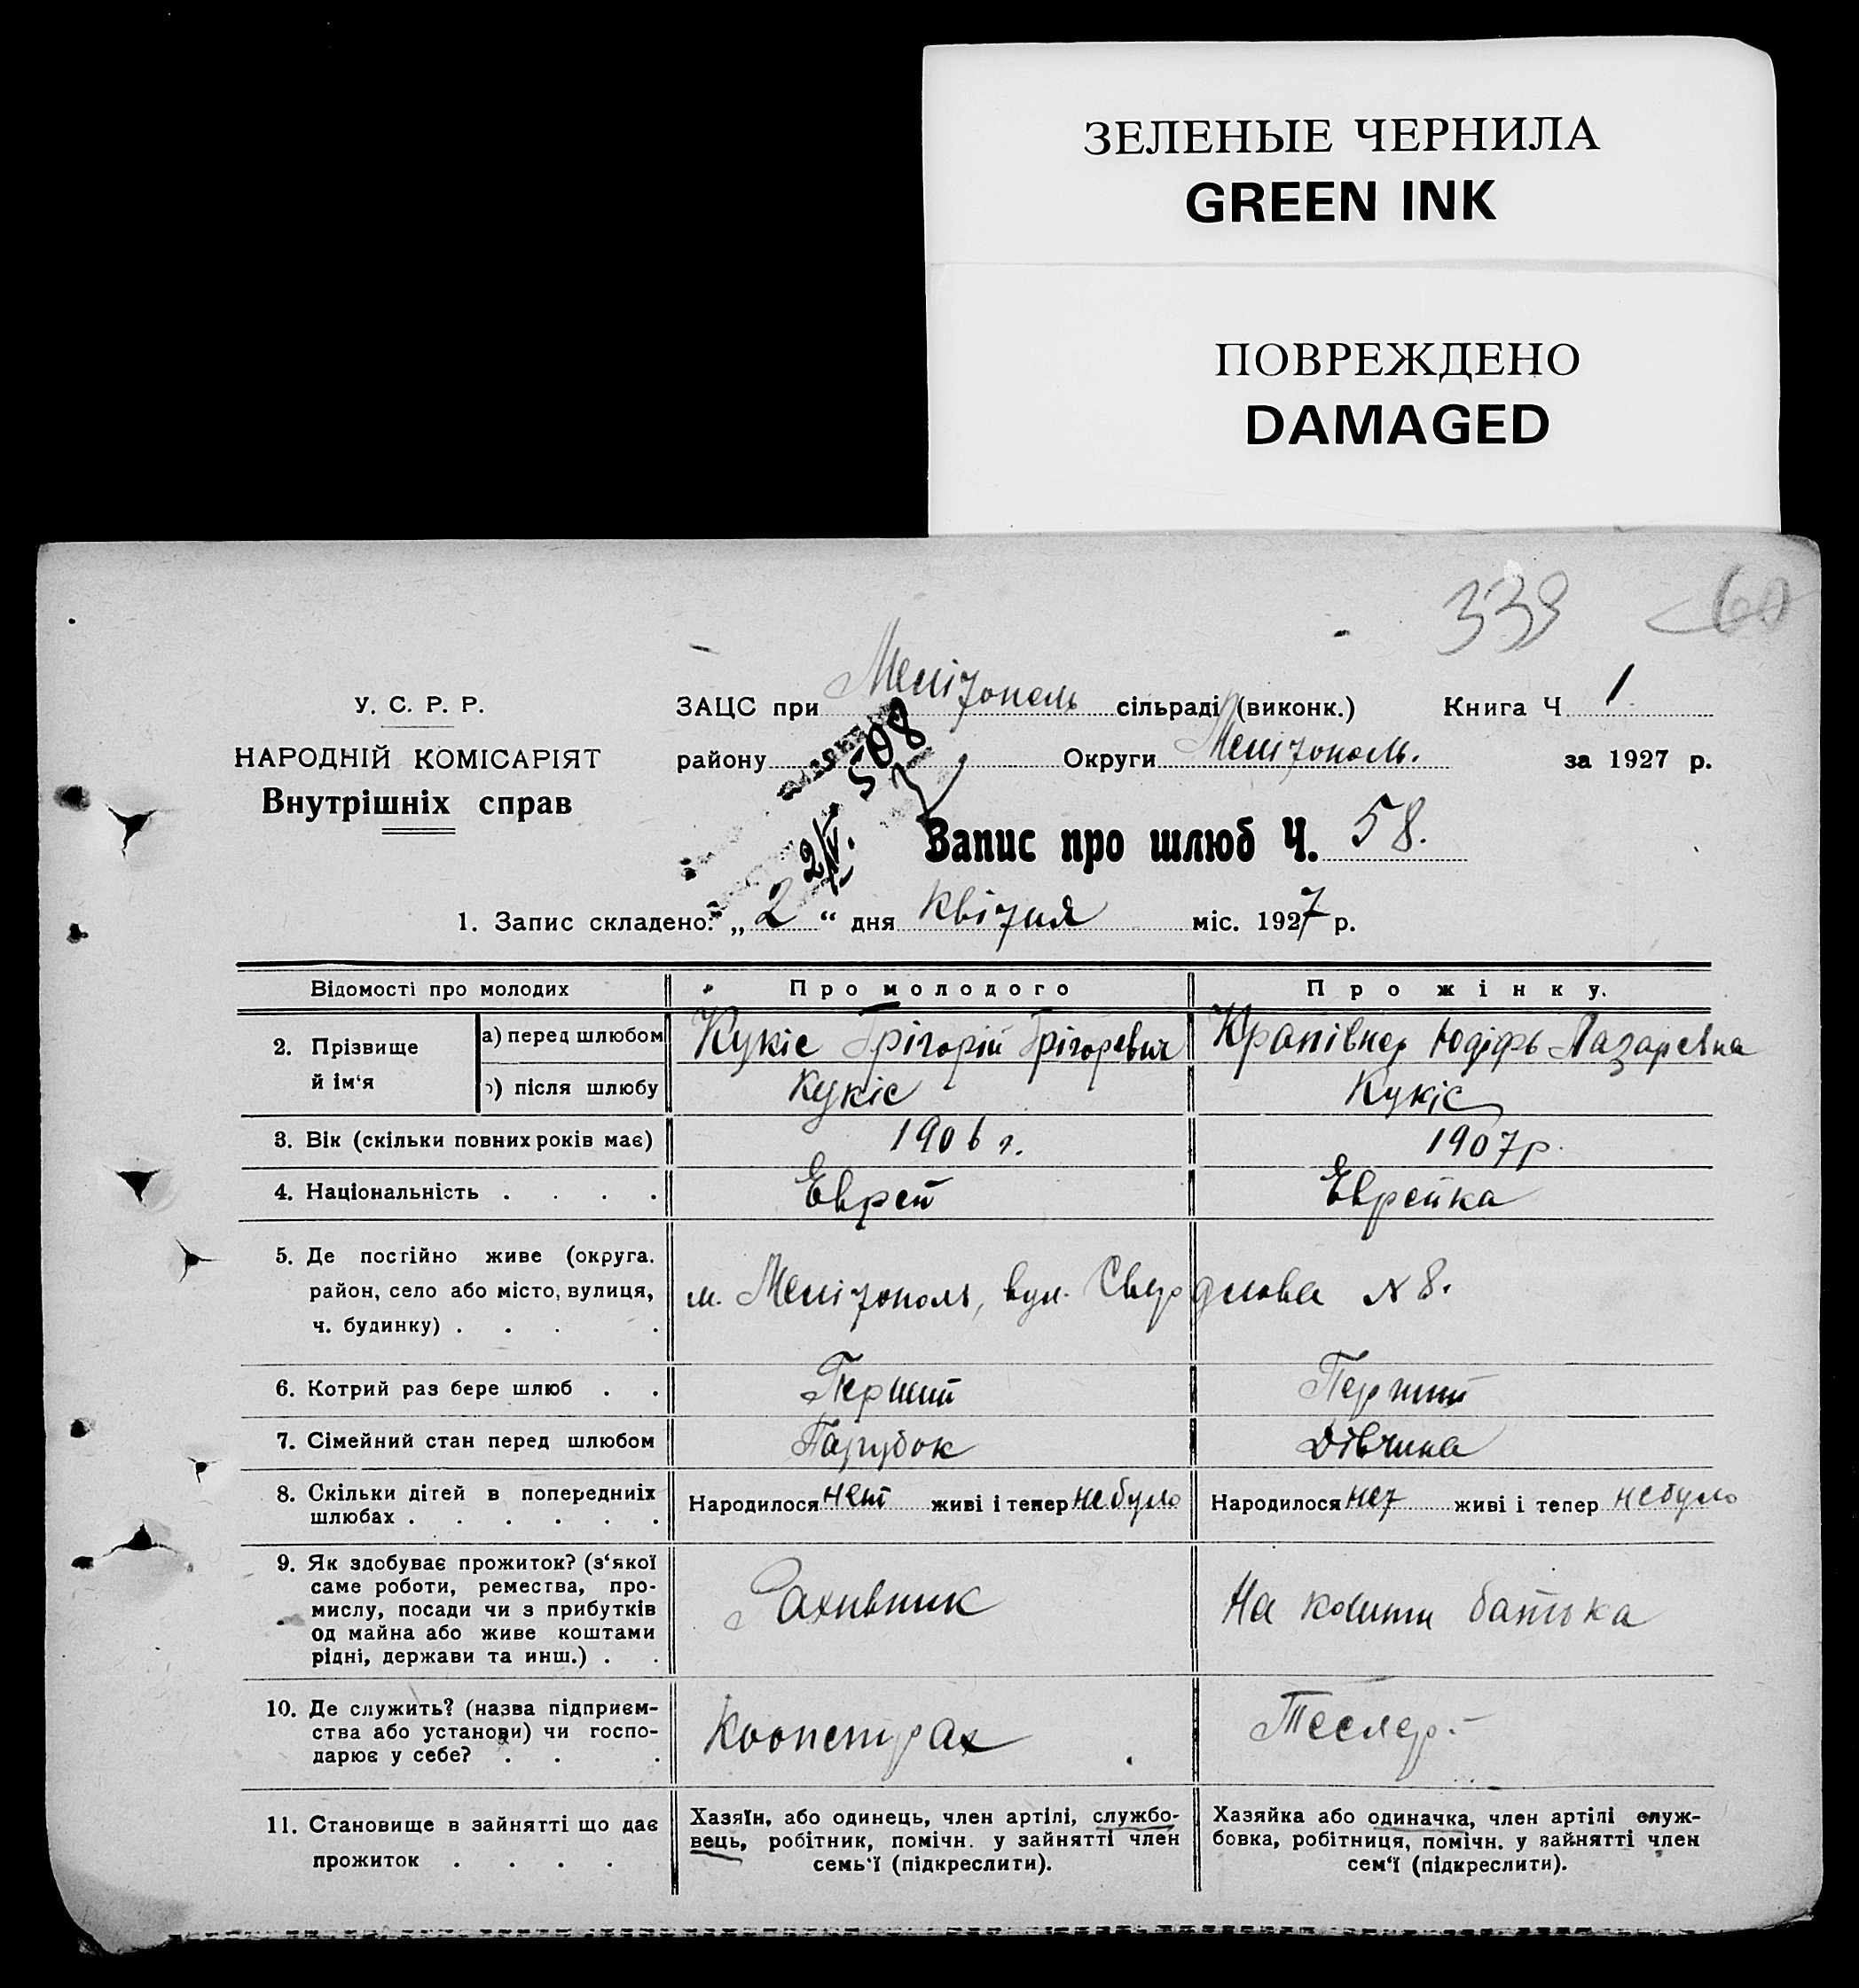 ЗЕЛЕНЫЕ ЧЕРНИЛА
GREEN INK
ПОВРЕЖДЕНО
DAMAGED
339 60
У. С. Р. Р.
НАРОДНІЙ КОМІСАРІЯТ
Внутрішніх справ
ЗАЦС при Мелітополь сільраді (виконк.) Книга Ч 1.
району Округи Мелітополь. за 1927 р.
508
2/IV.
Запис про шлюб Ч. 58.
1. Запис складено: „ 2 “ дня квітня міс. 1927 р.
Відомості про молодих Про молодого Про жінку.
2. Прізвище й ім‘я
а) перед шлюбом Кукіс Грігорій Грігоревич Крапівнер Юдіфь Лазаревна
) після шлюбу Кукіс Кукіс
3. Вік (скільки повних років має) 1906 г. 1907 р.
4. Національність . . . . Еврей Еврейка
5. Де постійно живе (округа.
район, село або місто, вулиця,
ч. будинку) . . . .
м. Мелітополь, вул. Свердлова № 8.
6. Котрий раз бере шлюб . . Перший Перший
7. Сімейний стан перед шлюбом Парубок Дівчина
8. Скільки дітей в попередниіх
шлюбах . . . . . .
Народилося нет живі і тепер не було Народилося нет живі і тепер не було
9. Як здобуває прожиток? (з‘якої
саме роботи, ремества, про-
мислу, посади чи з прибутків
од майна або живе коштами
рідні, держави та инш.) . .
Рахивник На кошти батька
10. Де служить? (назва підприєм-
ства або установи) чи госпо-
дарює у себе? . . .
11. Становище в зайнятті що дає
прожиток . . . .
Хазяїн, або одинець, член артілі, службо-
вець, робітник, помічн. у зайнятті член
семь‘ї (підкреслити).
Хазяйка або одиначка, член артілі служ-
бовка, робітниця, помічн. у зайнятті член
сем‘ї (підкреслити).